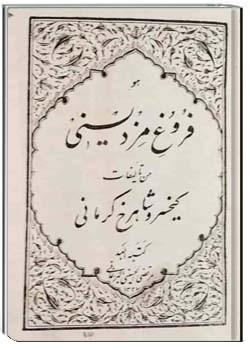 هو
فروغ مزدیسنی
من تألیفات
کیخسرو شاهرخ کرمانی